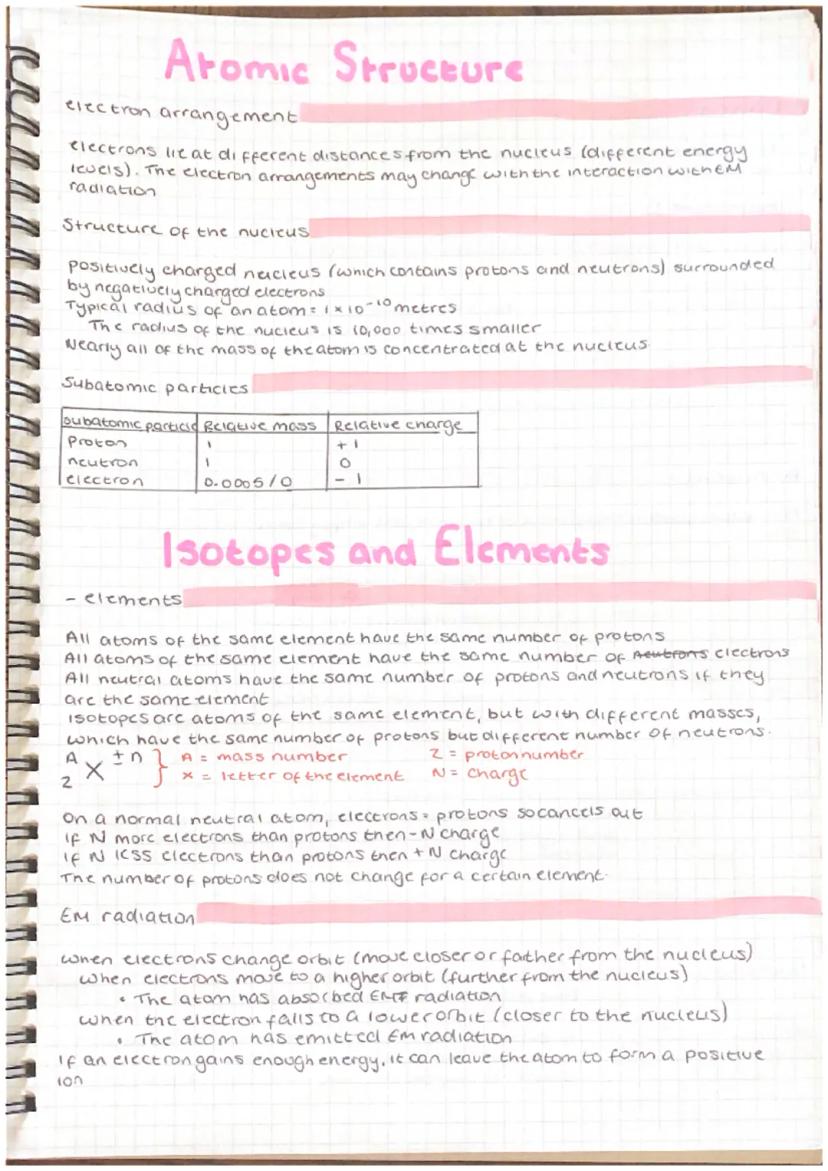 Atomic Structure
electron arrangement
electrons lie at different distances from the nucleus (different energy
levels). The electron arrangements may change with the interaction with EM
radiation
Structure of the nucleus
positively charged nucleus (which contains protons and neutrons) surrounded
by negatively charged electrons
Typical radius of an atom = 1 x 10⁻¹⁰ metres
The radius of the nucleus is 10,000 times smaller
Nearly all of the mass of the atom is concentrated at the nucleus
Subatomic particles
Subatomic particle Relative mass Relative charge
Proton 1 +1
neutron 1 0
electron 0.0005/0 -1
Isotopes and Elements
- elements
All atoms of the same element have the same number of protons
All atoms of the same element have the same number of neutrons electrons
All neutral atoms have the same number of protons and neutrons if they
are the same element
Isotopes are atoms of the same element, but with different masses,
which have the same number of protons but different number of neutrons.
A ±n } A = mass number Z = proton number
Z X x = letter of the element N = charge
On a normal neutral atom, electrons = protons so cancels out
If N more electrons than protons then -N charge
If N less electrons than protons then +N charge
The number of protons does not change for a certain element.
EM radiation
when electrons change orbit (move closer or farther from the nucleus)
when electrons move to a higher orbit (further from the nucleus)
• The atom has absorbed EM radiation
when the electron falls to a lower orbit (closer to the nucleus)
• The atom has emitted EM radiation
If an electron gains enough energy, it can leave the atom to form a positive
ion